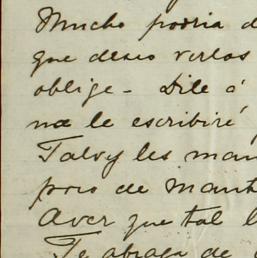 Mucho podria d
que deseo verlos
oblige - Dile á
na le escribiré
Talvy les man
poco de mant
Aver que tal l
Te abraza de